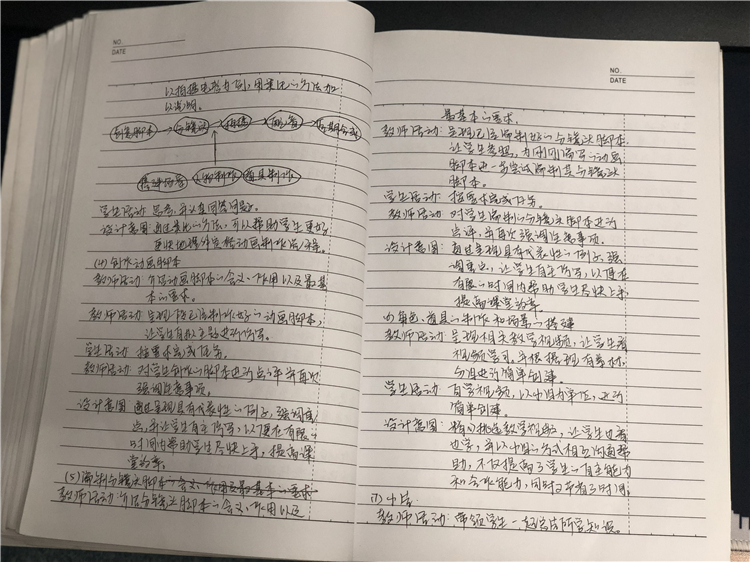 NO.
DATE
以拍摄电影为例,用类比的方法加
以说明。
创意脚本 分镜头 拍摄 配音 后期合成
搭建场景 人物制作 道具制作
学生活动:思考,并认真回答问题。
设计意图:通过类比的方法,可以帮助学生更好
更快地理解定格动画制作流程。
(4)创作动画脚本
教师活动:介绍动画脚本的含义、作用以及最基
本的要求。
教师活动:呈现自己编制好的动画脚本,
让学生自拟主题进行仿写。
学生活动:按要求完成任务。
教师活动:对学生创作的脚本进行点评并再次
强调注意事项。
设计意图:通过呈现具有代表性的例子,强调重
点,并让学生自主仿写,以便在有限的
时间内帮助学生尽快上手,提高课
堂效率。
(5)编制分镜头脚本的含义、作用及最基本的要求
教师活动:介绍分镜头脚本的含义、作用以及
NO.
DATE
最基本的要求。
教师活动:呈现自己编制好的分镜头脚本,
让学生参照,为刚刚编写的动画
脚本进一步尝试编制其分镜头
脚本。
学生活动:按要求完成任务。
教师活动:对学生编制的分镜头脚本进行
点评,并再次强调注意事项。
设计意图:通过呈现具有代表性的例子,强
调重点,让学生自主仿写,以便在
有限的时间内帮助学生尽快上手,
提高课堂效率。
(6)角色、道具的制作和场景的搭建
教师活动:呈现相关教学视频,让学生看
视频学习,并根据现有素材,
分组进行简单创建。
学生活动:自学视频,以小组为单位,进行
简单创建。
设计意图:精心挑选教学视频,让学生边看
边学,并以小组的方式相互沟通帮
助,不仅提高了学生的自主能力
和合作能力,同时又节省了时间。
(7)小结
教师活动:带领学生一起总结所学知识。